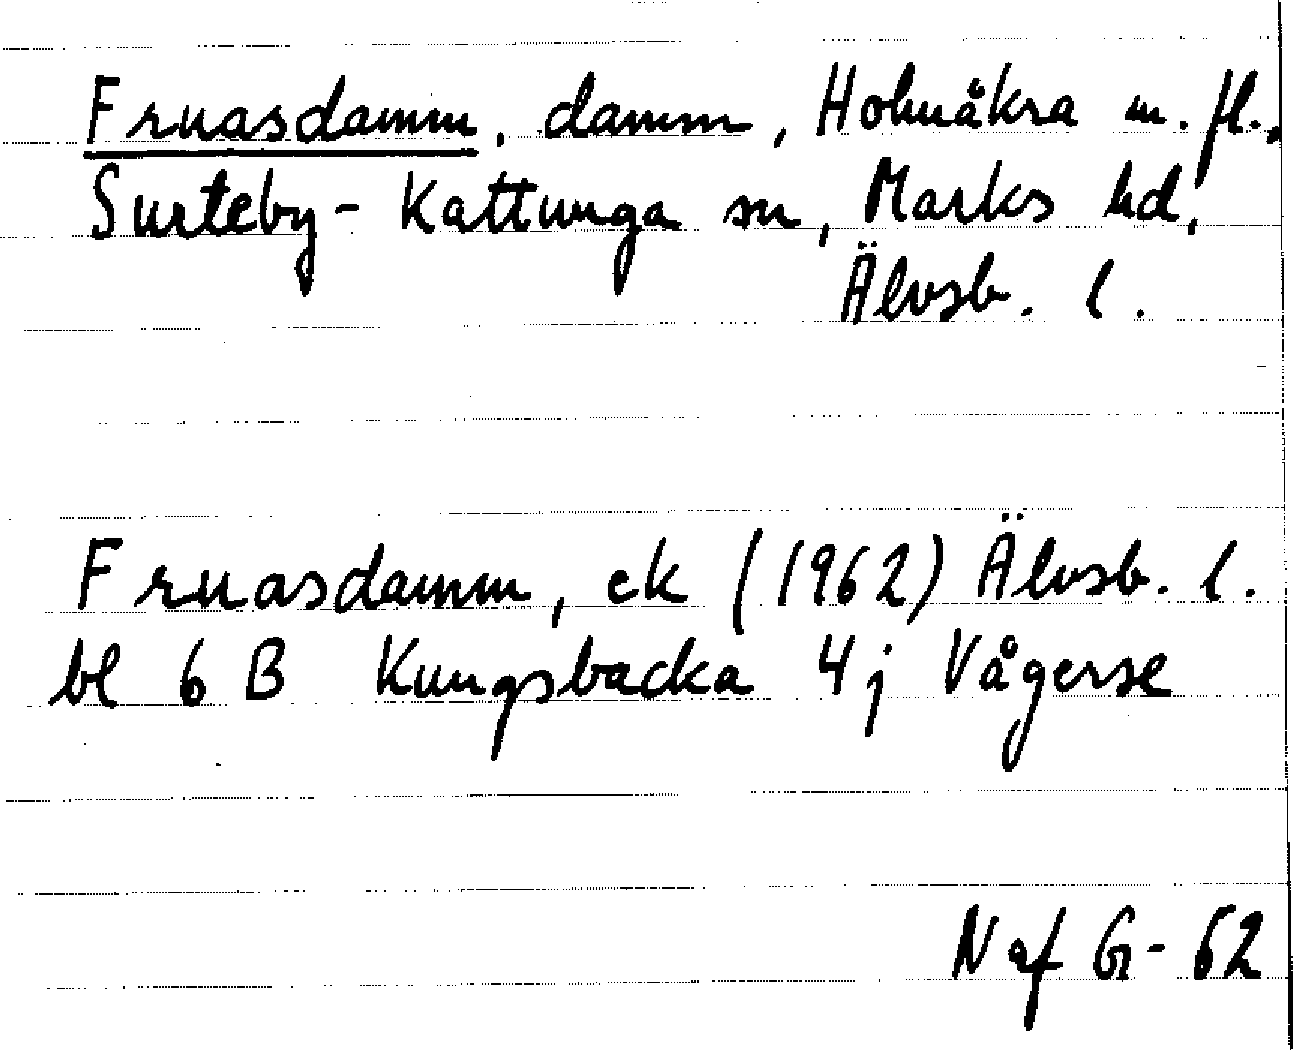 Fruasdamm, damm, Holmåkra m. fl.,
Surteby-Kattunga sn, Marks hd,
Älvsb. l.
Fruasdamm, ek (1962) Älvsb. l.
bl 6 B Kungsbacka 4j Vågerse
Naf G-62